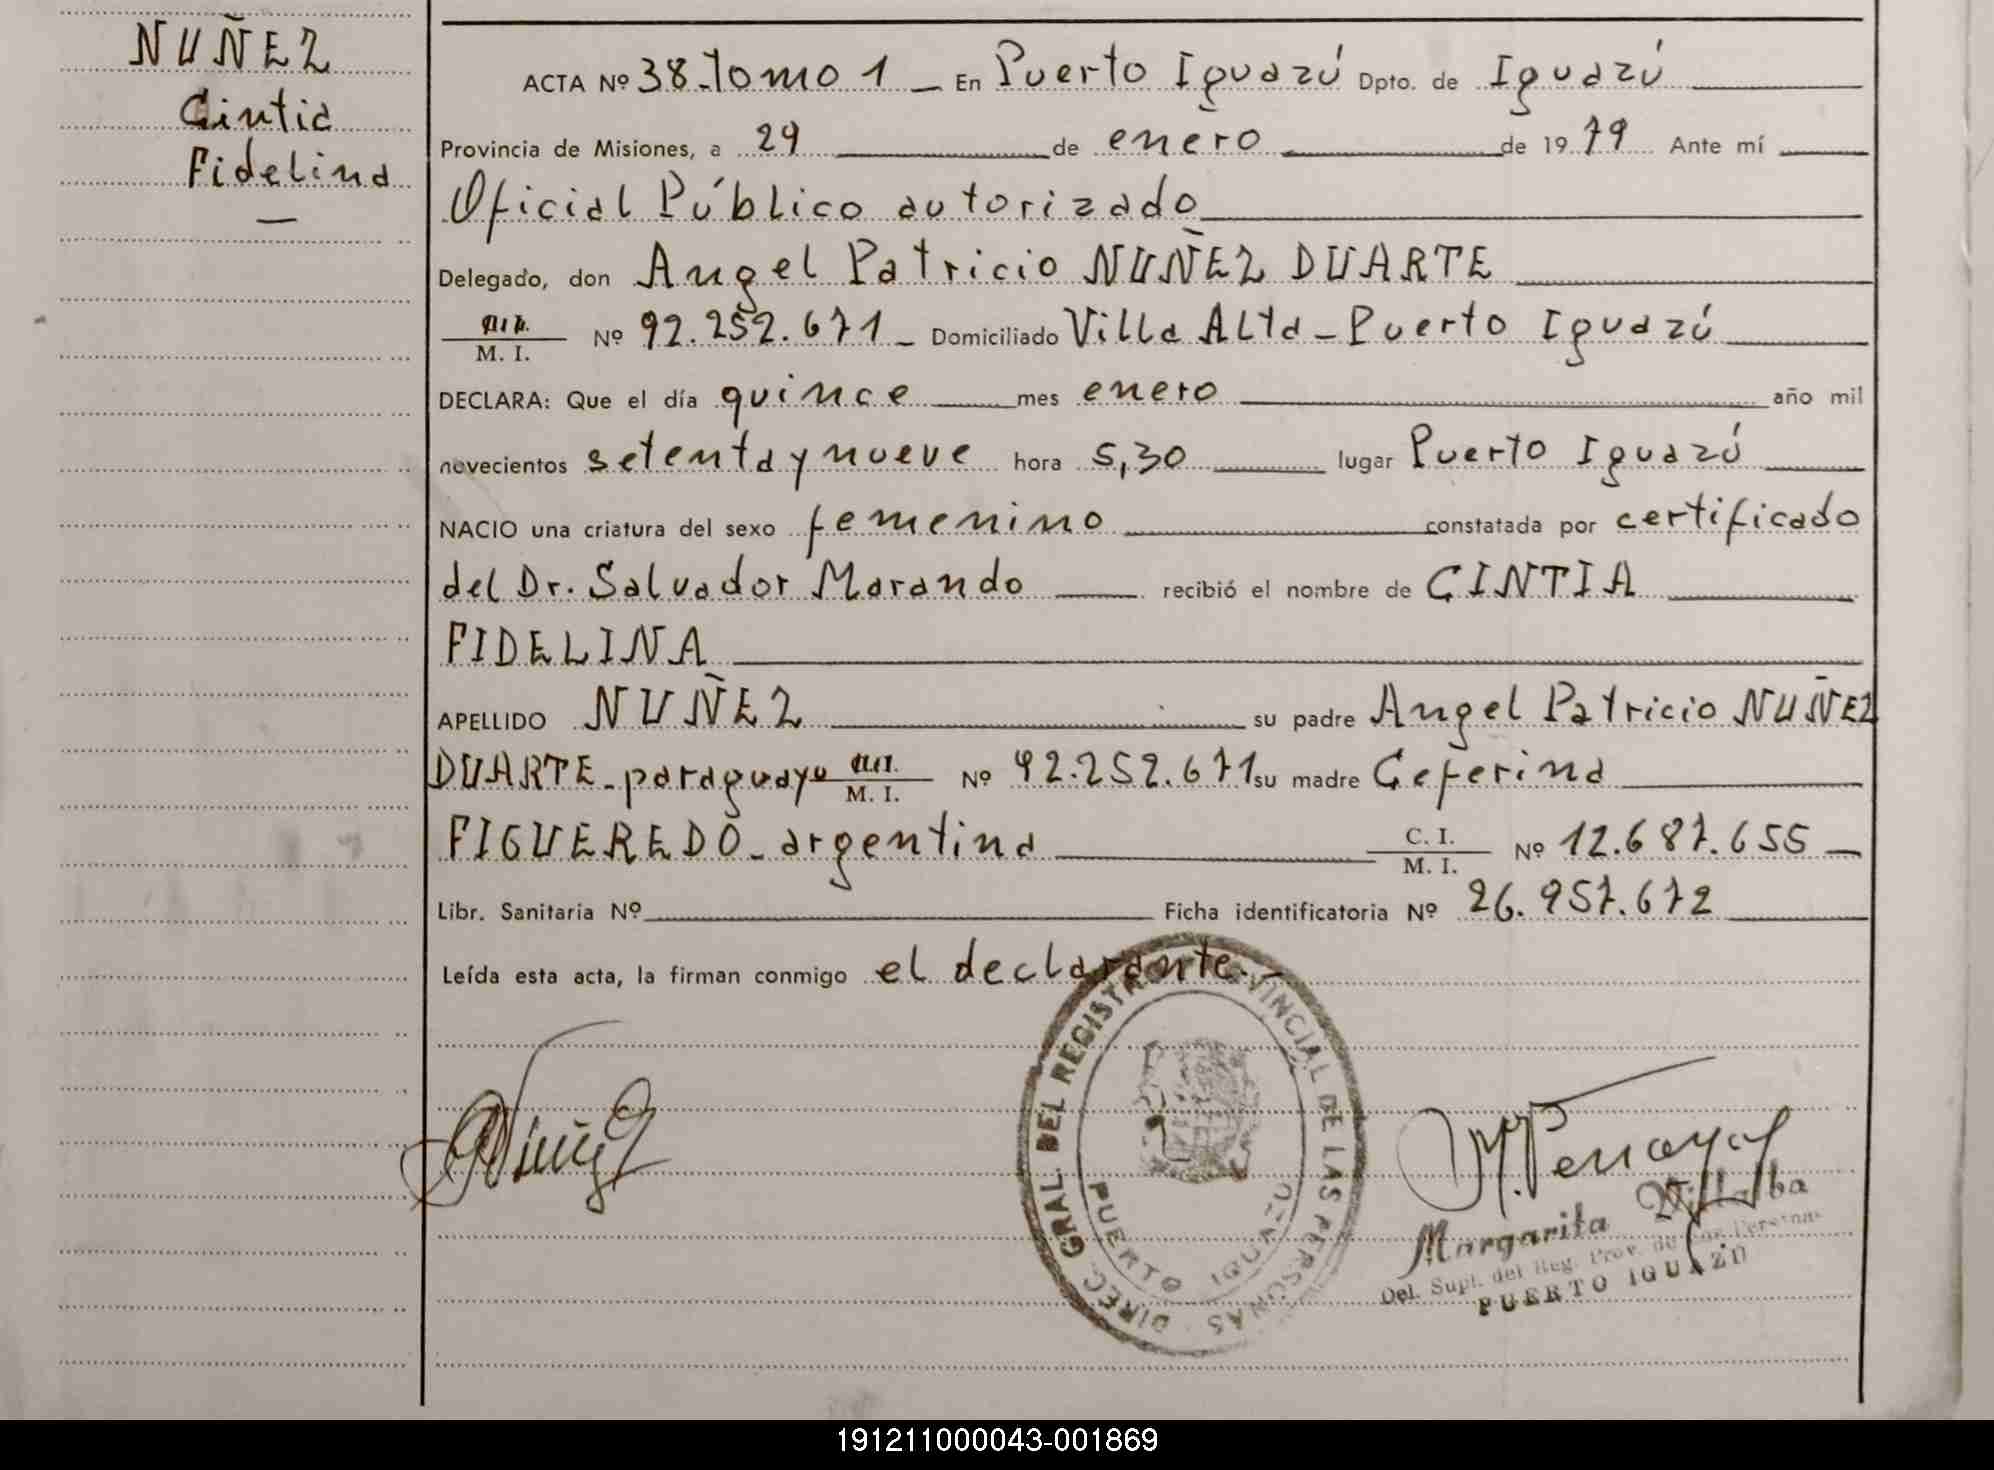 NUÑEZ
Cintia
Fidelina
ACTA Nº 38-Tomo 1 _ En Puerto Iguazú Dpto. de Iguazú
Provincia de Misiones, a 29 de enero de 1979 Ante mí
Oficial Público autorizado
Delegado, don Angel Patricio NUÑEZ DUARTE
M. I. Nº 92.252.671 _ Domiciliado Villa Alta - Puerto Iguazú
DECLARA: Que el día quince mes enero año mil
novecientos setenta y nueve hora 5,30 lugar Puerto Iguazú
NACIO una criatura del sexo femenino constatada por certificado
del Dr. Salvador Marando recibió el nombre de CINTIA
FIDELINA
APELLIDO NUÑEZ su padre Angel Patricio NUÑEZ
DUARTE - paraguayo M. I. Nº 92.252.671 su madre Ceferina
FIGUEREDO - argentina C. I. M. I. Nº 12.687.655
Libr. Sanitaria Nº Ficha identificatoria Nº 26.957.672
Leída esta acta, la firman conmigo el declarante.-
DIREC. GRAL DEL REGISTRO PROVINCIAL DE LAS PERSONAS
PUERTO IGUAZU
Margarita Villalba
Del. Supl. del Reg. Prov. de las Personas
PUERTO IGUAZU
191211000043-001869